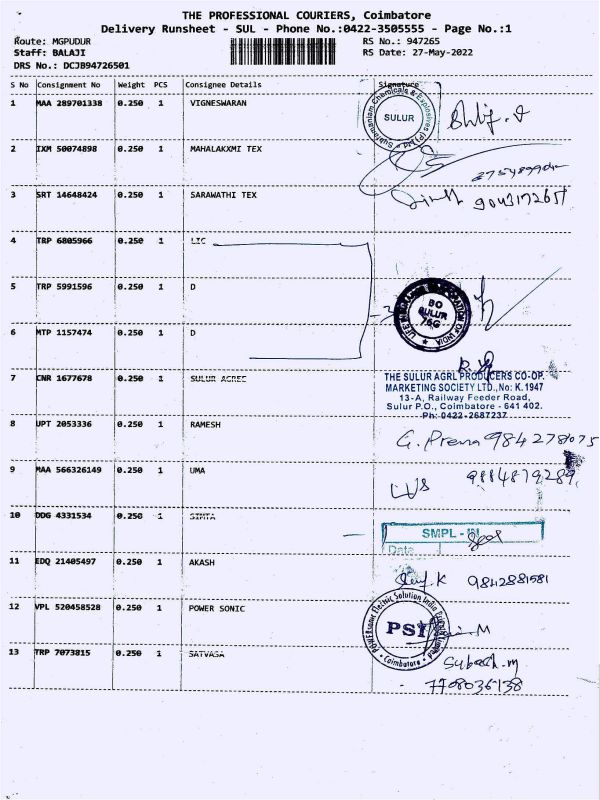 THE PROFESSIONAL COURIERS, Coimbatore
Delivery Runsheet - SUL - Phone No.:0422-3505555 - Page No.:1
Route: MGPUDUR RS No.: 947265
Staff: BALAJI RS Date: 27-May-2022
DRS No.: DCJB94726501
S No Consignment No Weight PCS Consignee Details Signature
1 MAA 289701338 0.250 1 VIGNESWARAN
Subhmaniam Chemicals & Explosives (P) Ltd
SULUR
2 IXM 50074898 0.250 1 MAHALAKXMI TEX
3 SRT 14648424 0.250 1 SARAWATHI TEX
4 TRP 6805966 0.250 1 LIC
5 TRP 5991596 0.250 1 D
LIFE INSURANCE CORPORATION OF INDIA
BO
SULUR
76G
6 MTP 1157474 0.250 1 D
7 CNR 1677678 0.250 1 SULUR AGREC
THE SULUR AGRL PRODUCERS CO-OP.
MARKETING SOCIETY LTD.,No: K.1947
13-A, Railway Feeder Road,
Sulur P.O., Coimbatore - 641 402.
Ph: 0422-2687237
8 UPT 2053336 0.250 1 RAMESH
G. Prema 984278075
9 MAA 566326149 0.250 1 UMA
9884879289
10 DDG 4331534 0.250 1 SIMTA
SMPL -
Date
11 EDQ 21405497 0.250 1 AKASH
9842881581
12 VPL 520458528 0.250 1 POWER SONIC
POWERsonic Electric Solution India Private Limited
PSI
Coimbatore
13 TRP 7073815 0.250 1 SATVASA
Subash.m
7708036138